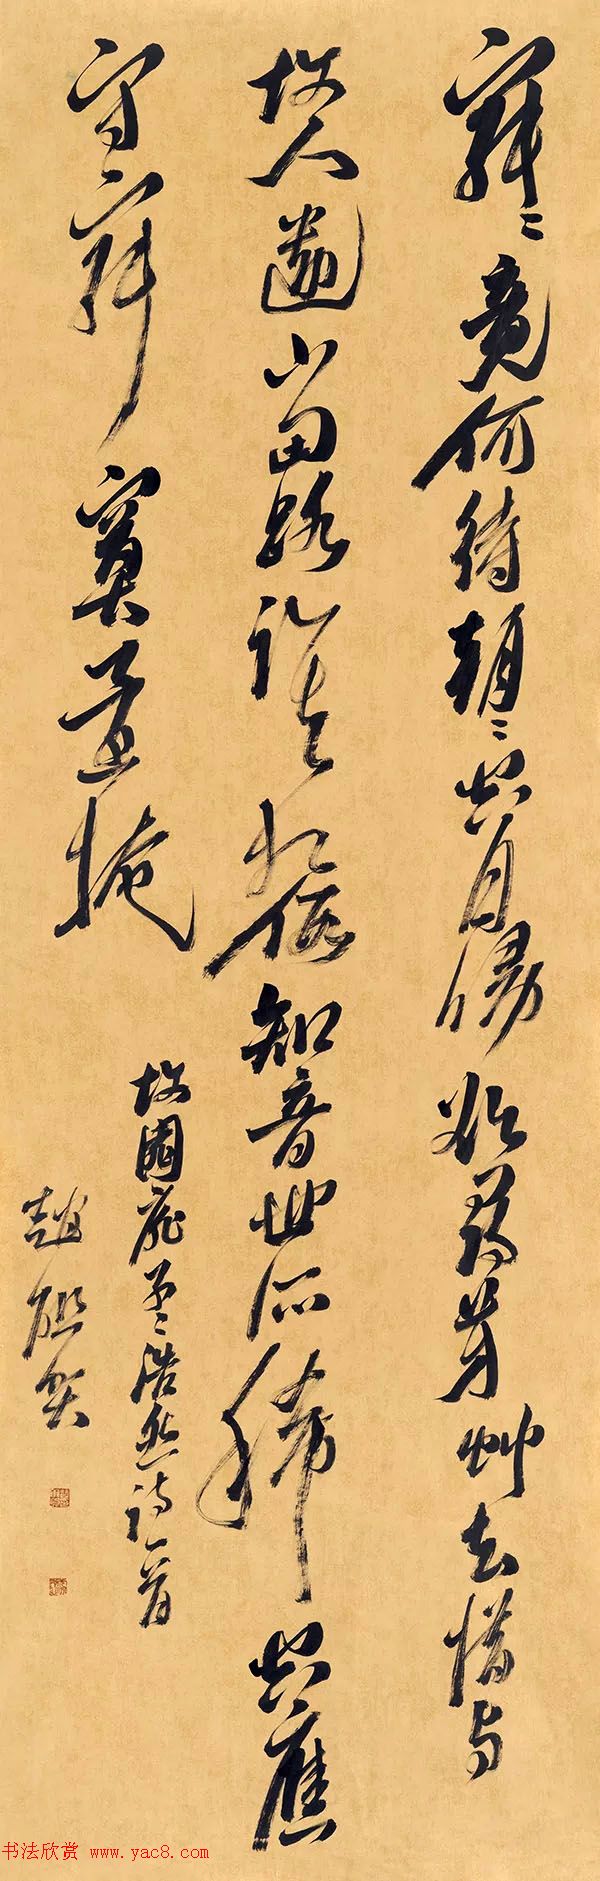 寂〻竟何待朝〻空自歸欲尋芳艸去惜与
故人違當路誰相假知音世所稀空應
守寂寞還掩
故園扉孟浩然詩一首
趙雁君
书法欣赏 www.yac8.com